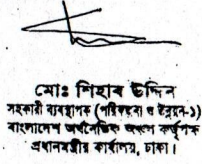 মোঃ শিহাব উদ্দিন
সহকারী ব্যবস্থাপক (পরিকল্পনা ও ইন্ড্রাস-১)
বাংলাদেশ অর্থনৈতিক অঞ্চল কর্তৃপক্ষ
প্রধানমন্ত্রীর কার্যালয়, ঢাকা।